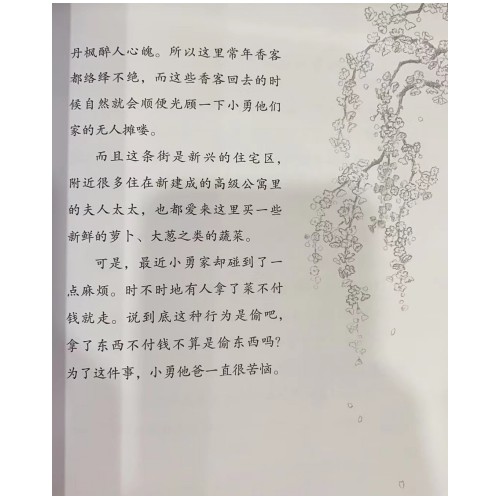 丹枫醉人心魄。所以这里常年香客
都络绎不绝，而这些香客回去的时
候自然就会顺便光顾一下小勇他们
家的无人摊喽。
而且这条街是新兴的住宅区，
附近很多住在新建成的高级公寓里
的夫人太太，也都爱来这里买一些
新鲜的萝卜、大葱之类的蔬菜。
可是，最近小勇家却碰到了一
点麻烦。时不时地有人拿了菜不付
钱就走。说到底这种行为是偷吧，
拿了东西不付钱不算是偷东西吗？
为了这件事，小勇他爸一直很苦恼。